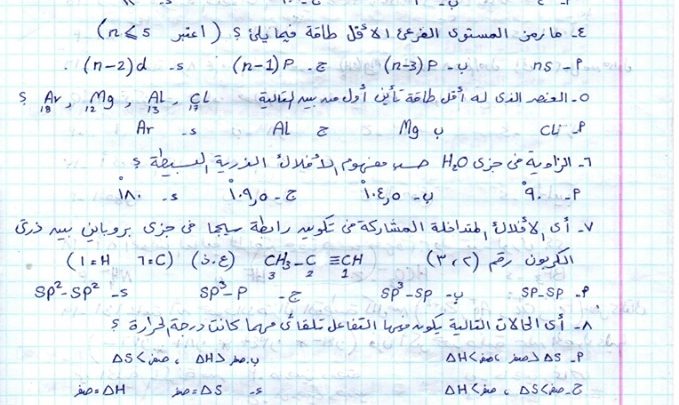 ٤- ما رمز المستوى الفرعي الأقل طاقة فيما يلي ؟ ( اعتبر n ⩽ 5 )
٩- ns ب- (n-3)P ج- (n-1)P د- (n-2)d .
٥- العنصر الذي له أقل طاقة تأين أول من بين التالية 17Cl , 13Al , 12Mg , 18Ar ؟
٩- Cl ب Mg ج Al د- Ar
٦- الزاوية في جزئ H2O حسب مفهوم الأفلاك الذرية البسيطة ؟
٩- ٩٠° ب- ١٠٤,٥° ج- ١٠٩,٥° د- ١٨٠°
٧- أي الأفلاك المتداخلة المشاركة في تكوين رابطة سيجما في جزئ بروباين بين ذرتي
الكربون رقم (٢ ، ٣) CH3-C≡CH 3 2 1 (ع.ذ) (٦=C) (١=H)
٩- SP-SP ب- SP3-SP ج- SP3-P د- SP2-SP2
٨- أي الحالات التالية يكون فيها التفاعل تلقائي مهما كانت درجة الحرارة ؟
٩- ΔS > صفر ، ΔH < صفر ب- صفر < ΔH ، صفر > ΔS
ج- ΔS < صفر ، ΔH < صفر د- ΔS = صفر ΔH = صفر